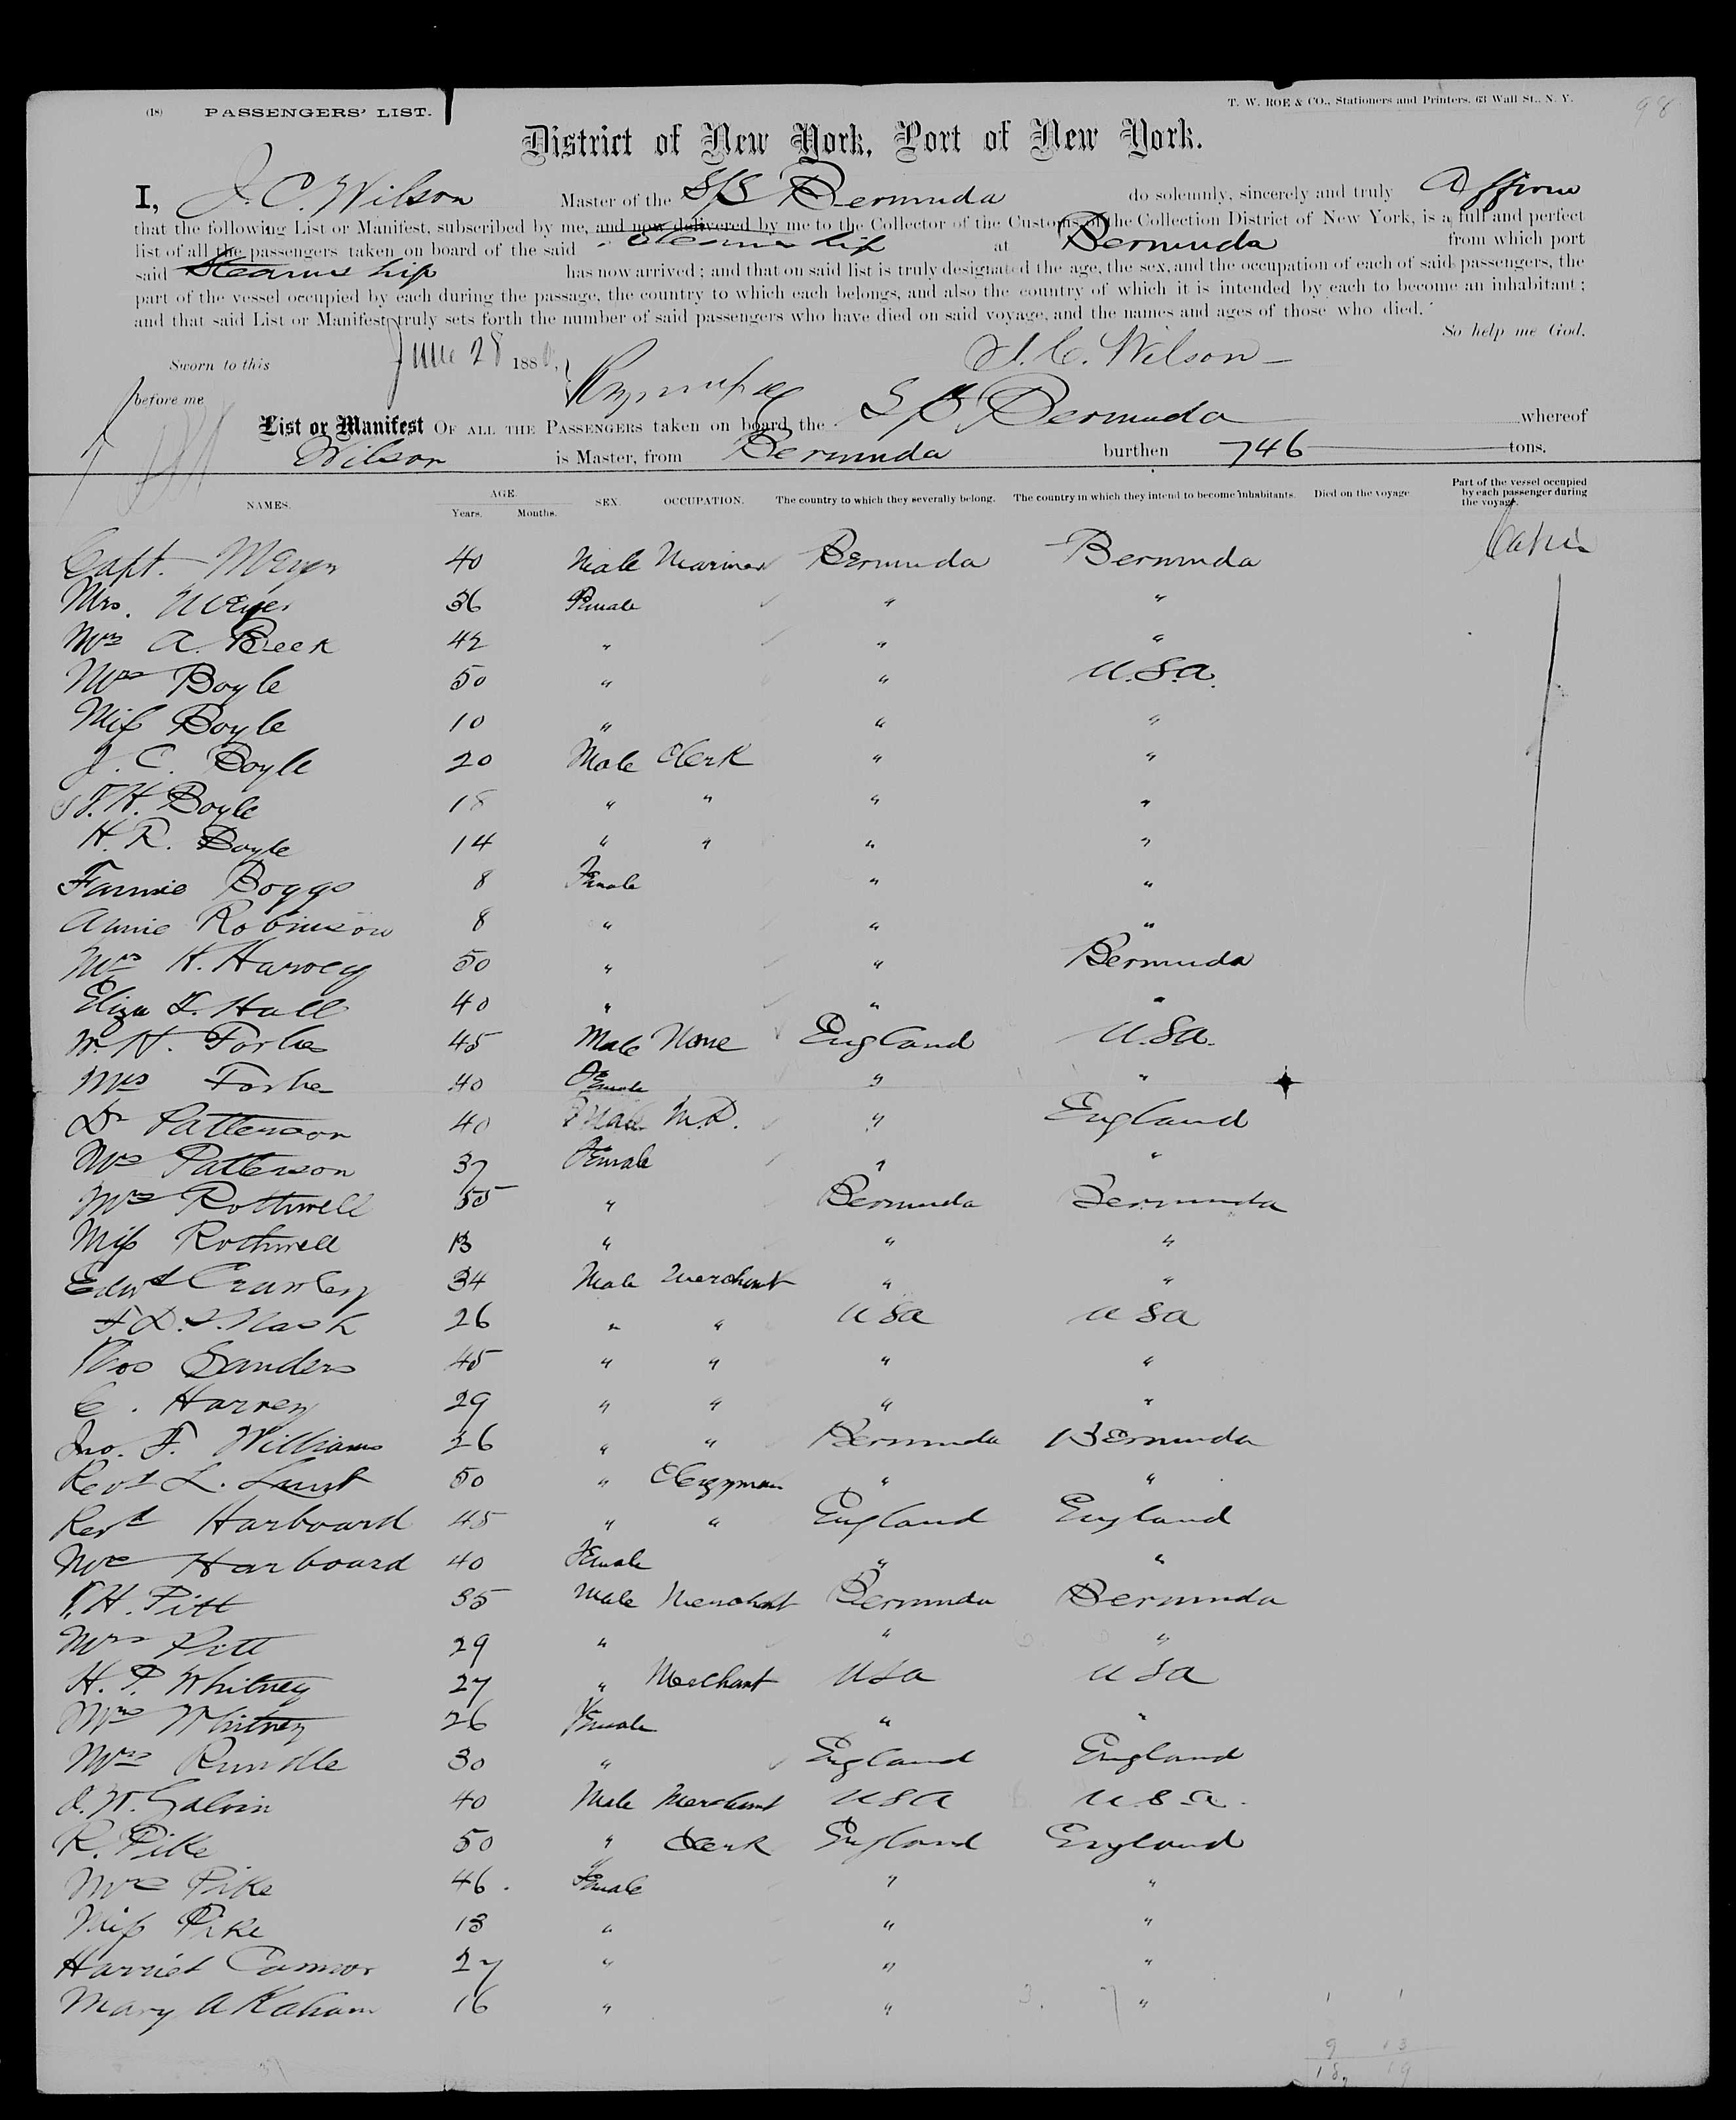 (18) PASSENGERS' LIST. T. W. ROE & CO., Stationers and Printers, 63 Wall St., N. Y. 98
District of New York, Port of New York.
I, J. C. Wilson Master of the S/S Bermuda do solemnly, sincerely and truly Affirm
that the following List or Manifest, subscribed by me, and now delivered by me to the Collector of the Customs of the Collection District of New York, is a full and perfect
list of all the passengers taken on board of the said Steamship at Bermuda from which port
said Steamship has now arrived; and that on said list is truly designated the age, the sex, and the occupation of each of said passengers, the
part of the vessel occupied by each during the passage, the country to which each belongs, and also the country of which it is intended by each to become an inhabitant;
and that said List or Manifest truly sets forth the number of said passengers who have died on said voyage, and the names and ages of those who died.
So help me God.
Sworn to this June 28 188 J. C. Wilson
before me
List or Manifest OF ALL THE PASSENGERS taken on board the S S Bermuda whereof
Wilson is Master, from Bermuda burthen 746 tons.
NAMES. AGE. Years. Months. SEX. OCCUPATION. The country to which they severally belong. The country in which they intend to become inhabitants. Died on the voyage Part of the vessel occupied by each passenger during the voyage.
Capt. 40 Male Mariner Bermuda Bermuda Cabin
Mrs. 36 Female " "
Mrs A. Beek 42 " " "
Mrs Boyle 50 " " U.S.A.
Miss Boyle 10 " " "
J. C. Boyle 20 Male Clerk " "
J. H. Boyle 18 " " " "
H. R. Boyle 14 " " " "
Fannie Boggs 8 Female " "
Annie Robinson 8 " " "
Mrs H. Harvey 50 " " Bermuda
Eliza T. Hall 40 " " "
W. H. Forbes 45 Male None England U.S.A.
Mrs Forbes 40 Female " "
Dr Patterson 40 Male M.D. " England
Mrs Patterson 37 Female " "
Mrs Rothwell 55 " Bermuda Bermuda
Miss Rothwell 13 " " "
Edwd Crawley 34 Male Merchant " "
F. D. S. Nash 26 " " USA USA
Thos Sanders 45 " " " "
C. Harvey 29 " " " "
Jno. F. Williams 26 " " Bermuda Bermuda
Revd L. 50 " Clergyman " "
Revd Harboard 45 " " England England
Mrs Harboard 40 Female " "
H. Pitt 35 Male Merchant Bermuda Bermuda
Mrs Pitt 29 " " "
H. P. Whitney 27 " Merchant USA USA
Mrs Whitney 26 Female " "
Mrs Rundle 30 " England England
J. W. Galvin 40 Male Merchant USA U.S.A.
R. Pike 50 " Clerk England England
Mrs Pike 46. Female " "
Miss Pike 13 " " "
Harriet Connor 27 " " "
Mary A 16 " " "
1 1
9 13
18 19